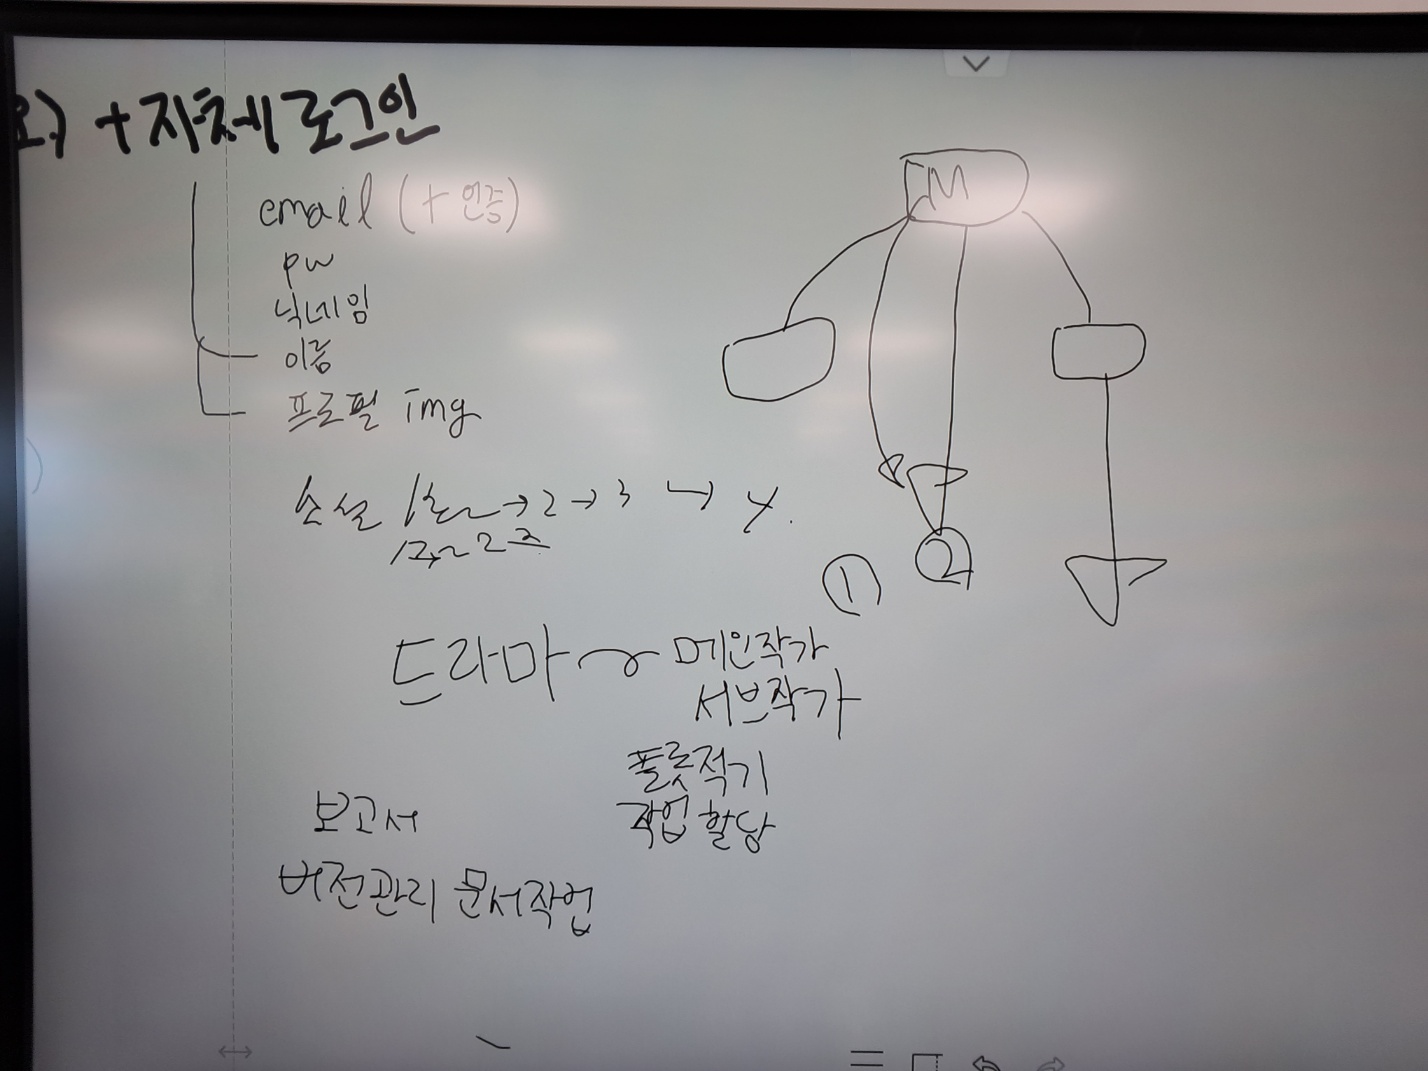 +자체로그인
email (+ 인증)
pw
닉네임
이름
프로필 img
M
소설 → 2 → 3 → 4.
2
1
드라마 ~ 메인작가
서브작가
플롯적기
작업할당
보고서
버전관리 문서작업